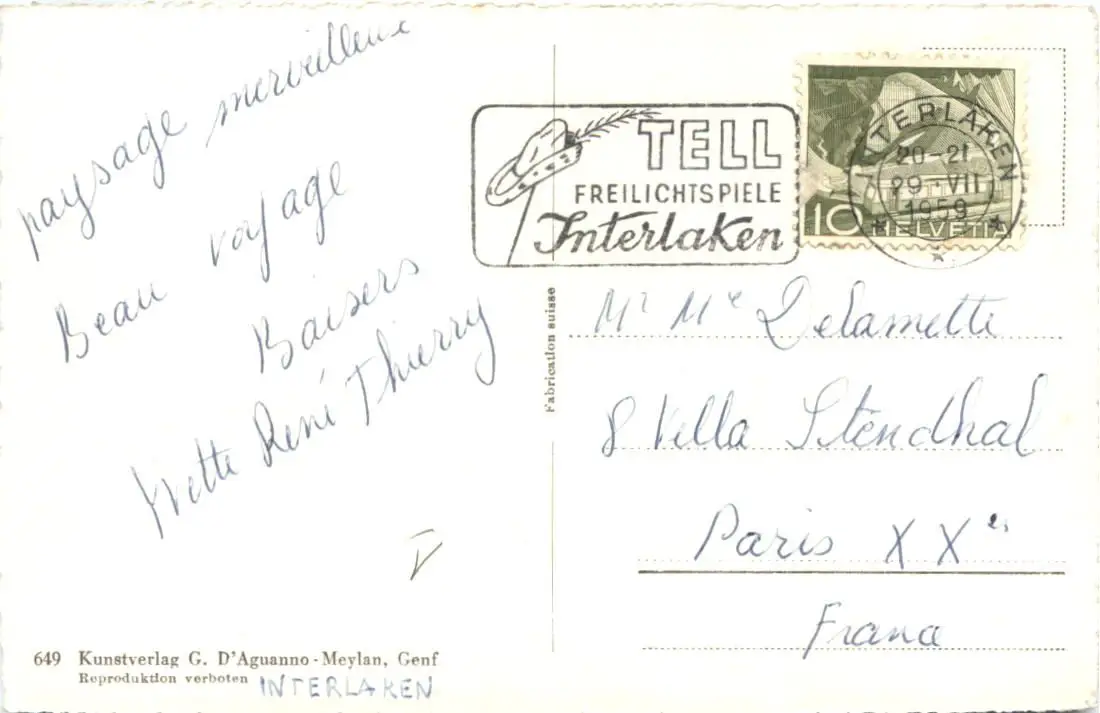 paysage merveilleux
Beau voyage
Baisers
Yvette René Thierry
V
649 Kunstverlag G. D'Aguanno - Meylan, Genf
Reproduktion verboten
INTERLAKEN
Fabrication suisse
TELL
FREILICHTSPIELE
Interlaken
INTERLAKEN
20-21
29·VII
1959
10 HELVETIA
Mr Me Delamette
8 Villa Stendhal
Paris XXe
France